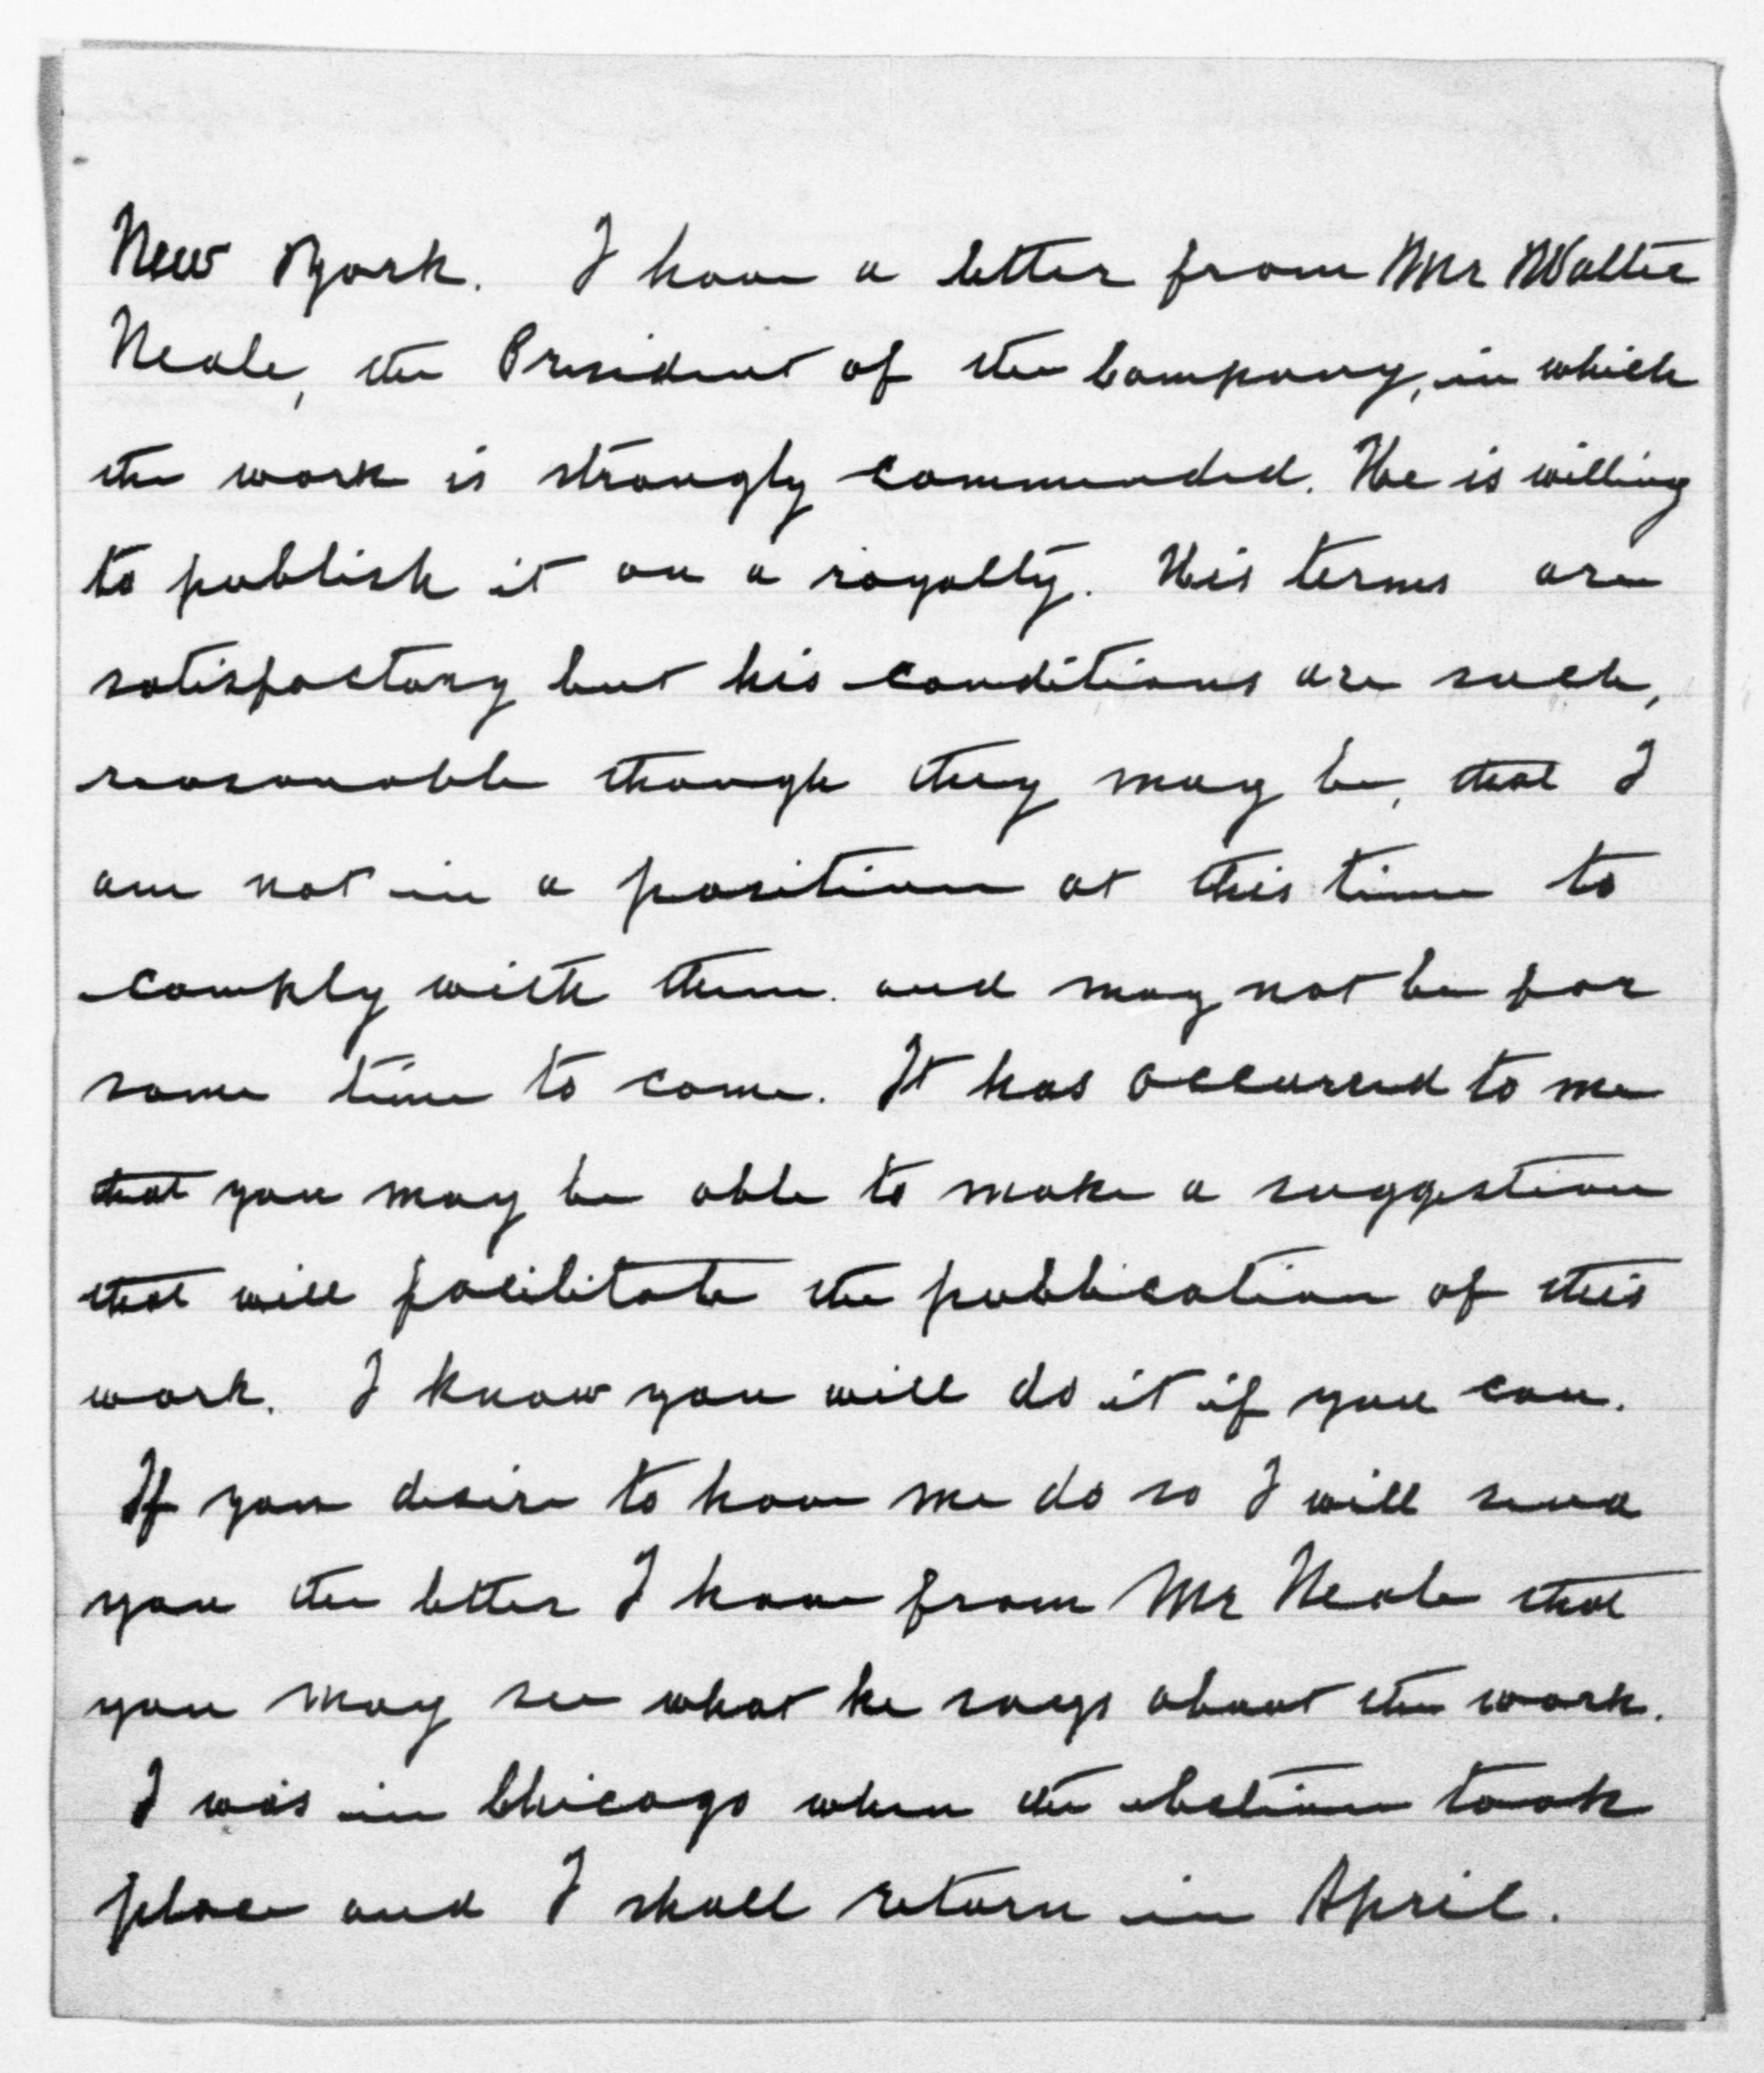 New York. I have a letter from Mr Walter
Neale, the President of the Company, in which
the work is strongly commended. He is willing
to publish it on a royalty. His terms are
satisfactory but his conditions are such,
reasonable though they may be, that I
am not in a position at this time to
comply with them. and may not be for
some time to come. It has occurred to me
that you may be able to make a suggestion
that will facilitate the publication of this
work. I know you will do it if you can.
If you desire to have me do so I will send
you the letter I have from Mr Neale that
you may see what he says about the work.
I was in Chicago when the election took
place and I shall return in April.